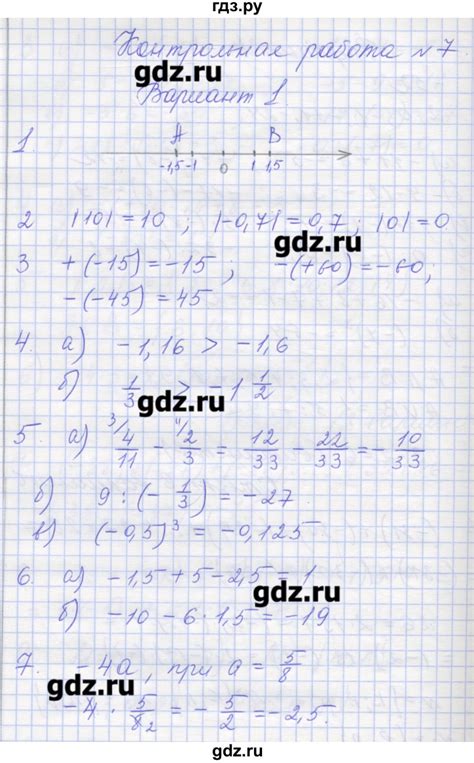 гдз.ру
Контрольная работа №7
gdz.ru
Вариант 1
1. A B
-1,5 -1 0 1 1,5
2 |10| = 10 ; |-0,7| = 0,7 ; |0| = 0
gdz.ru
3 +(-15) = -15 ; -(+60) = -60,
-(-45) = 45
4. а) -1,16 > -1,6
б) 1/3 > -1 1/2
gdz.ru
5. а) 3/ 4/11 - 11/ 2/3 = 12/33 - 22/33 = -10/33
б) 9 : (-1/3) = -27
в) (-0,5)³ = -0,125
6. а) -1,5 + 5 - 2,5 = 1
gdz.ru
б) -10 - 6 · 1,5 = -19
7. -4a, при a = 5/8
gdz.ru
-4 · 5/8₂ = -5/2 = -2,5.
gdz.ru